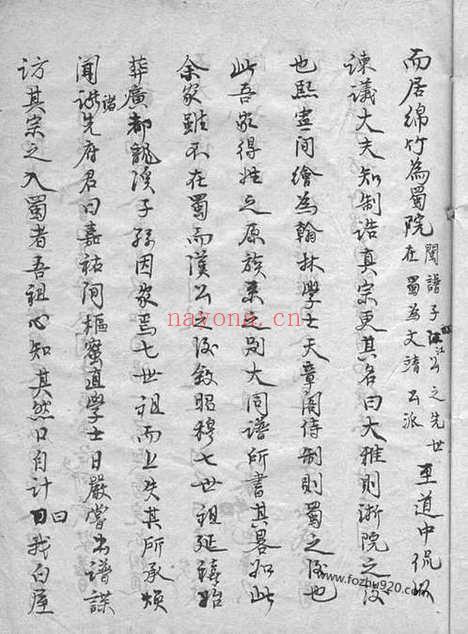 而居綿竹為蜀院
閩譜子江公之先世
在蜀為文靖公派
至道中侃為
諫議大夫知制誥真宗更其名曰大雅則浙院之後
也熙寧間繪為翰林學士天章閣待制則蜀之後也
此吾家得姓之原族系之別大同譜所書其畧如此
余家雖不在蜀而漢公之後敘昭穆七世祖延禧始
葬廣都龍溪子孫因家焉七世祖而上失其所承煩
聞諸先府君曰嘉祐間樞密直學士日嚴嘗出譜諜
訪其宗之入蜀者吾祖心知其然口自計曰我白屋
nayona.cn
www.fozhu920.com